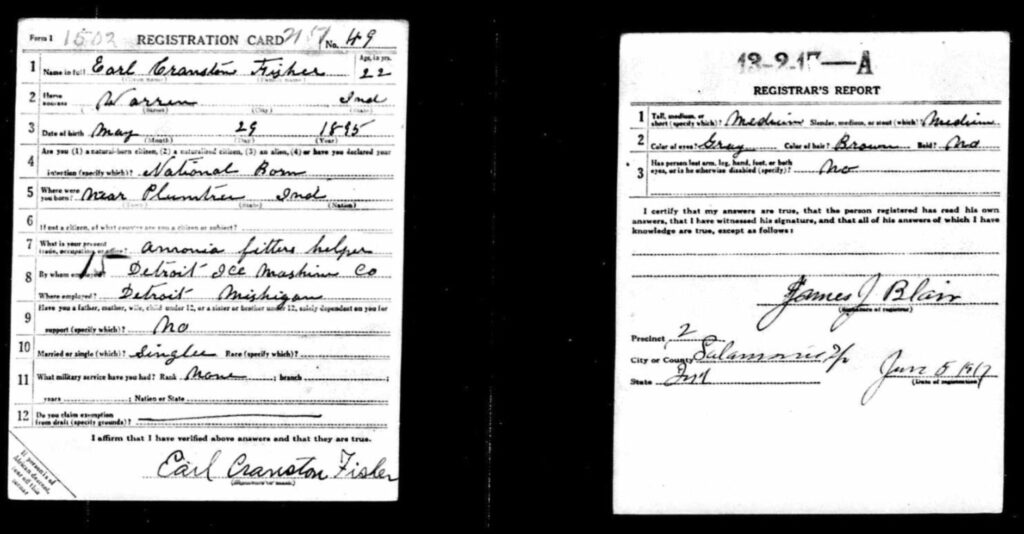 Form 1 1502 REGISTRATION CARD 2157 No. 49
1 Name in full Earl Cranston Fisher Age, in yrs. 22
(Given name) (Family name)
2 Home address Warren Ind
(Street) (City) (State)
3 Date of birth May 29 1895
(Month) (Day) (Year)
4 Are you (1) a natural-born citizen, (2) a naturalized citizen, (3) an alien, (4) or have you declared your
intention (specify which)? National Born
5 Where were you born? near Plumtree Ind
(Town) (State) (Nation)
6 If not a citizen, of what country are you a citizen or subject?
7 What is your present trade, occupation, or office? Amonia fitters helper
15
8 By whom employed? Detroit Ice Mashine Co
Where employed? Detroit Mishigan
9 Have you a father, mother, wife, child under 12, or a sister or brother under 12, solely dependent on you for
support (specify which)? No
10 Married or single (which)? Singlee Race (specify which)?
11 What military service have you had? Rank None ; branch ;
years ; Nation or State
12 Do you claim exemption from draft (specify grounds)?
I affirm that I have verified above answers and that they are true.
Earl Cranston Fisher
If person is of
African descent,
tear off this
corner
13-2-17—A
REGISTRAR'S REPORT
1 Tall, medium, or short (specify which)? Medium Slender, medium, or stout (which)? Medium
2 Color of eyes? Gray Color of hair? Brown Bald? No
3 Has person lost arm, leg, hand, foot, or both
eyes, or is he otherwise disabled (specify)? No
I certify that my answers are true, that the person registered has read his own
answers, that I have witnessed his signature, and that all of his answers of which I have
knowledge are true, except as follows:
James J Blair
(Signature of registrar)
Precinct 2
City or County Salamonie Tp
State Ind
June 5 1917
(Date of registration)